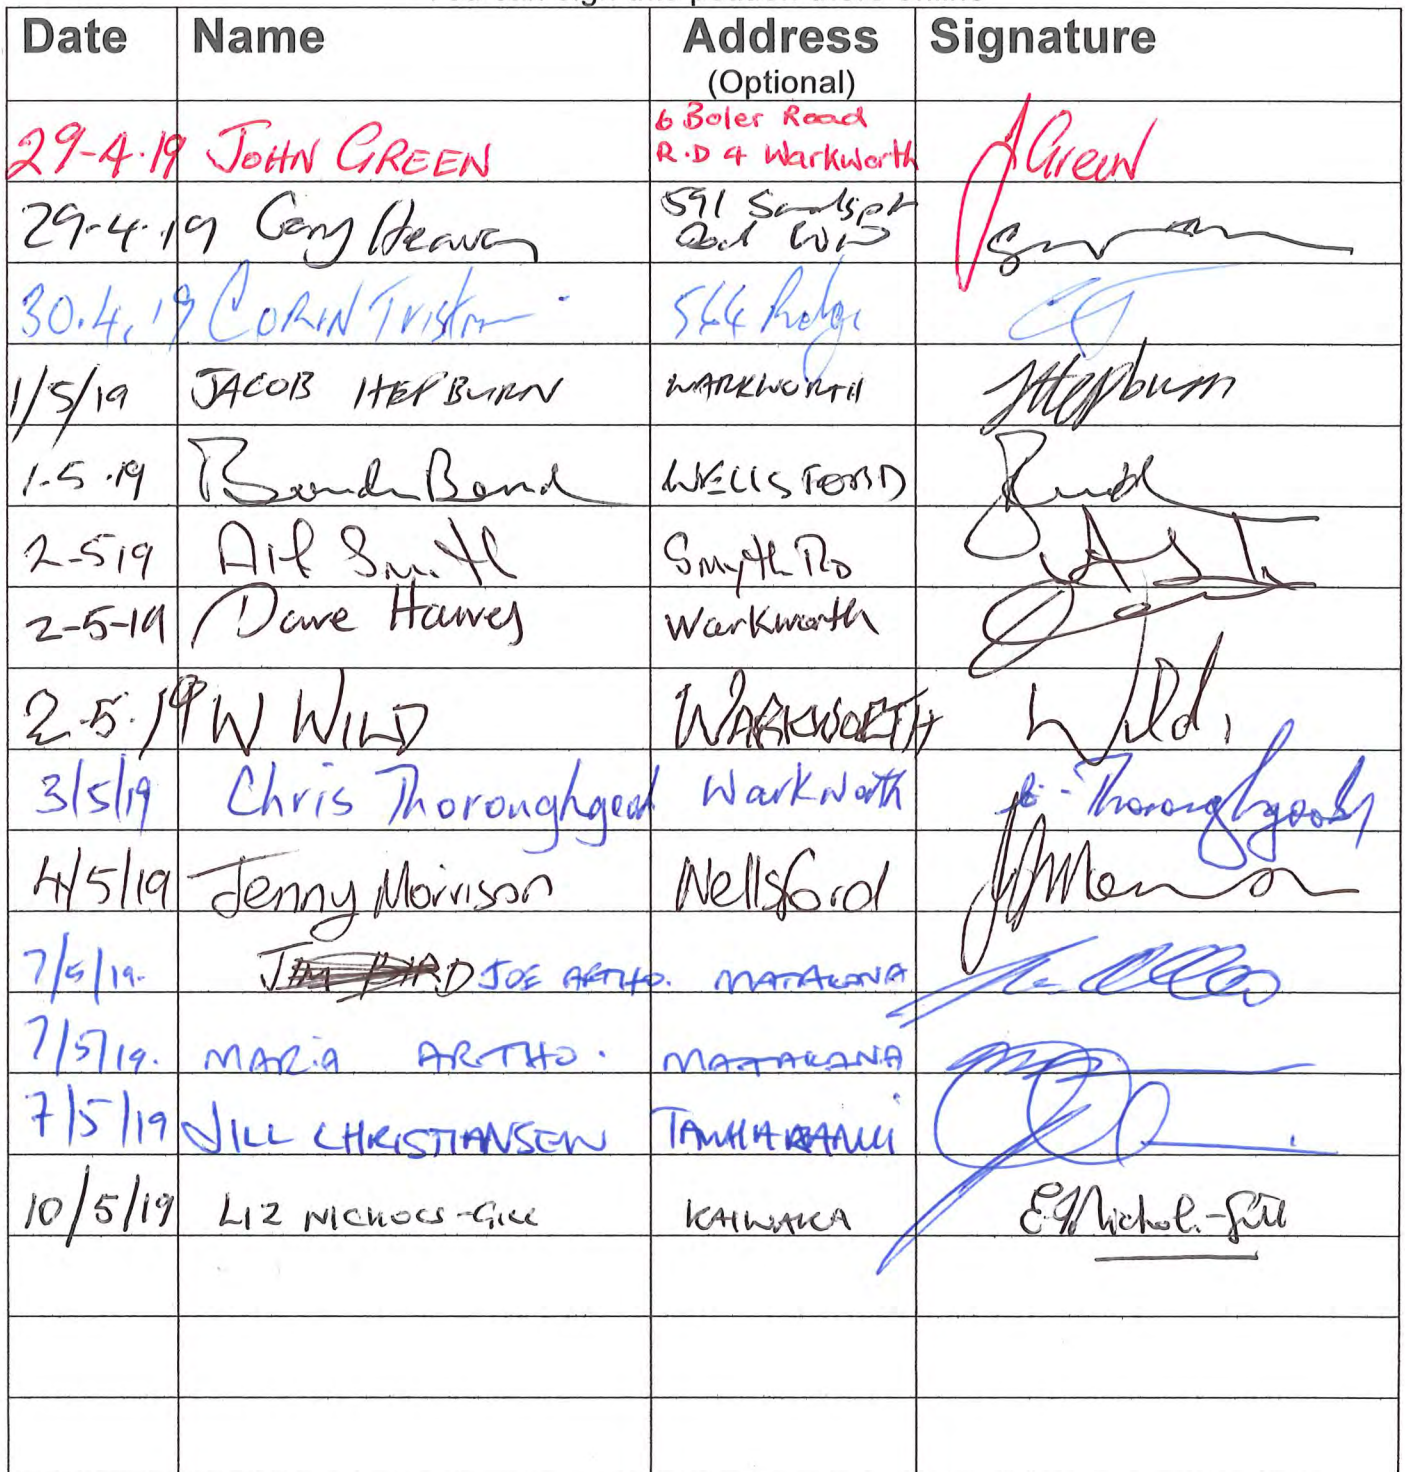 Date Name Address Signature
(Optional)
29-4-19 JOHN GREEN 6 Boler Road
R.D 4 Warkworth J Green
29-4-19 Gary Heaven 591
30.4.19 CORIN Tristram 564
1/5/19 JACOB HEPBURN WARKWORTH JHepburn
1-5-19 Bond WELLSFORD
2-519 Alf Smith Smyth RD
2-5-19 Dave Hawes Warkworth
2-5-19 W WILD WARKWORTH W Wild.
3/5/19 Chris Thoroughgood Warkworth Thoroughgood
4/5/19 Jenny Morrison Wellsford
7/5/19. JIM BIRD JOE ARTHO. MATAKANA
7/5/19. MARiA ARTHO. MATAKANA
7/5/19 JILL CHRISTIANSEN
10/5/19 LIZ NICHOLS-GILL KAIWAKA